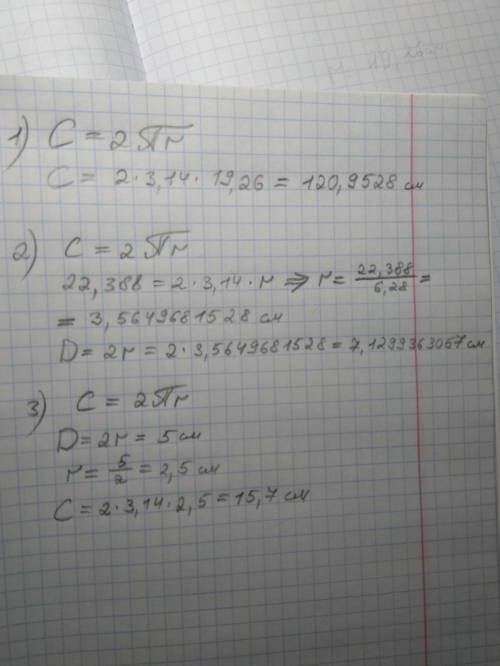 1) C = 2πr
C = 2·3,14·19,26 = 120,9528 см
2) C = 2πr
22,388 = 2·3,14·r ⇒ r = 22,388/6,28 =
= 3,5649681528 см
D = 2r = 2·3,5649681528 = 7,1299363057 см
3) C = 2πr
D = 2r = 5 см
r = 5/2 = 2,5 см
C = 2·3,14·2,5 = 15,7 см